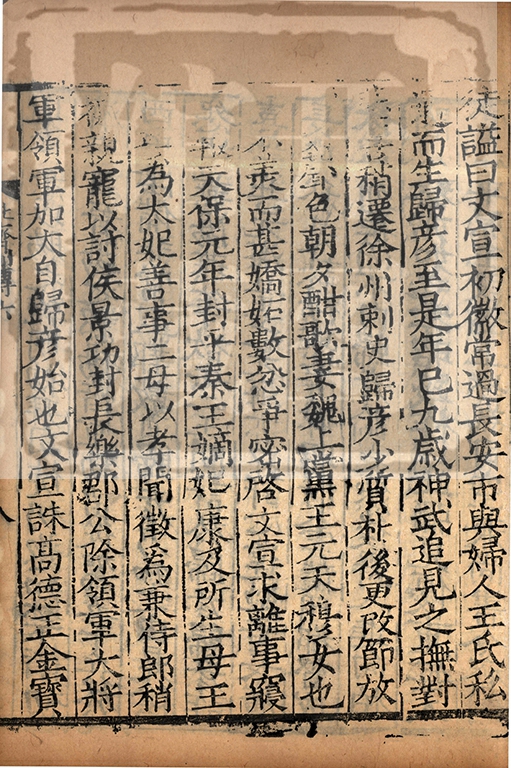 徒謚曰文宣初徽常過長安市與婦人王氏私
而生歸彦至是年巳九歳神武追見之撫對
喜稍遷徐州刺史歸彦少質朴後更改節放
色朝夕酣歌妻魏上黨王元天穆女也
美而甚嬌妬數忿爭密啓文宣求離事寢
天保元年封平秦王嫡妃康及所生母王
為太妃善事二母以孝聞徵為兼侍郎稍
親寵以討侯景功封長樂郡公除領軍大將
軍領軍加大自歸彦始也文宣誅高德正金寳